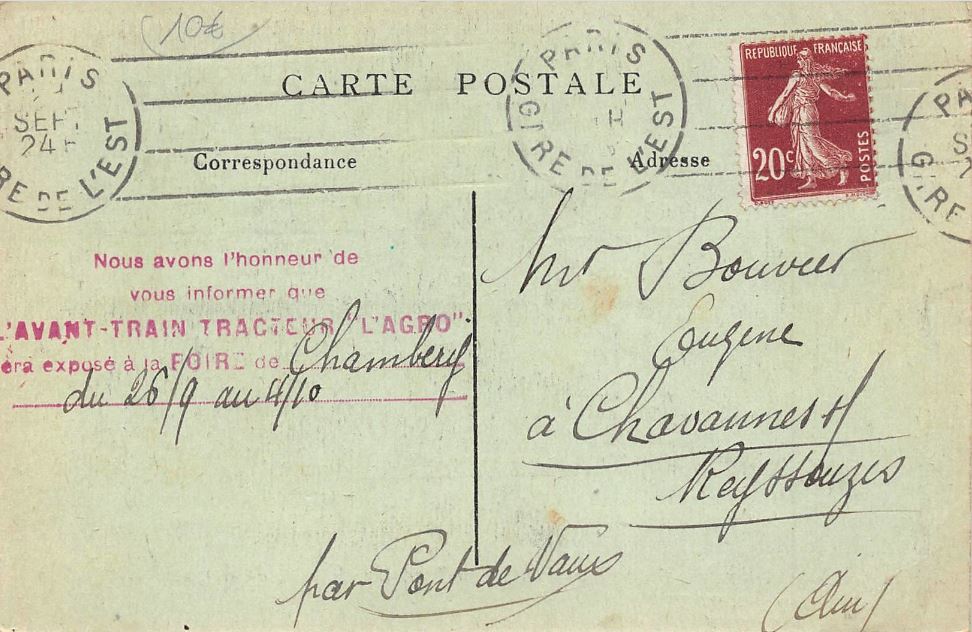 10€
PARIS
SEPT
24
GARE DE L'EST
PARIS
GARE DE L'EST
PA
CARTE POSTALE
REPUBLIQUE FRANÇAISE
20c
POSTES
Correspondance
Adresse
Nous avons l'honneur de
vous informer que
L'AVANT-TRAIN TRACTEUR "L'AGRO"
éra exposé à la FOIRE de Chambery
du 26/9 au 4/10
Mr Bouvier
Eugene
à Chavannes s/
Reyssouzes
par Pont de Vaux
(Ain)